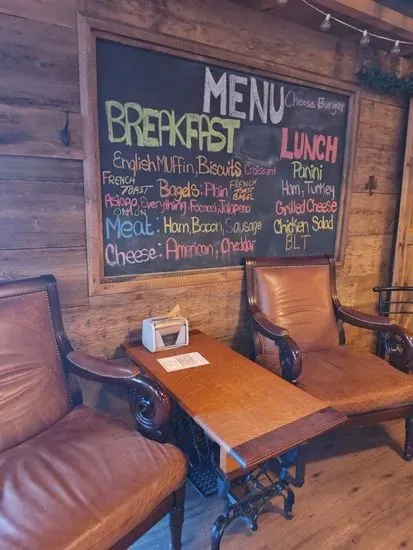 MENU
Cheese Burger
BREAKFAST
English Muffin, Biscuits Croissant
FRENCH TOAST Bagels: Plain FRENCH TOAST BAGEL
Asiago, Everything, Focacci, Jalapeno
ONION
Meat: Ham, Bacon, Sausage
Cheese: American, Cheddar
LUNCH
Panini
Ham, Turkey
Grilled Cheese
Chicken Salad
BLT